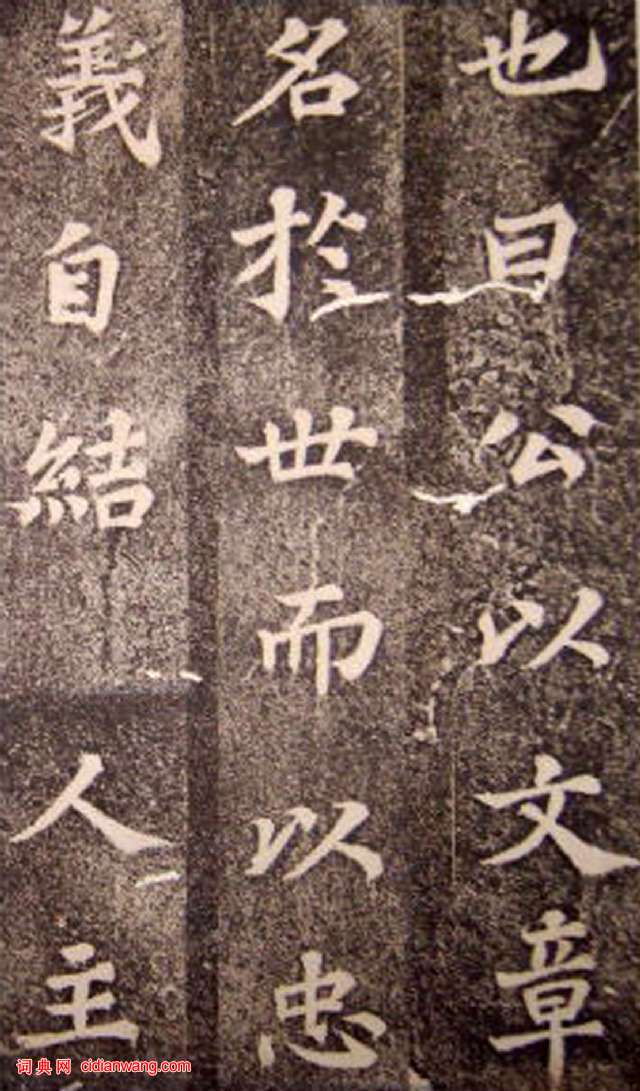 也曰公以文章
名於世而以忠
義自結人主
词典网 cidianwang.com